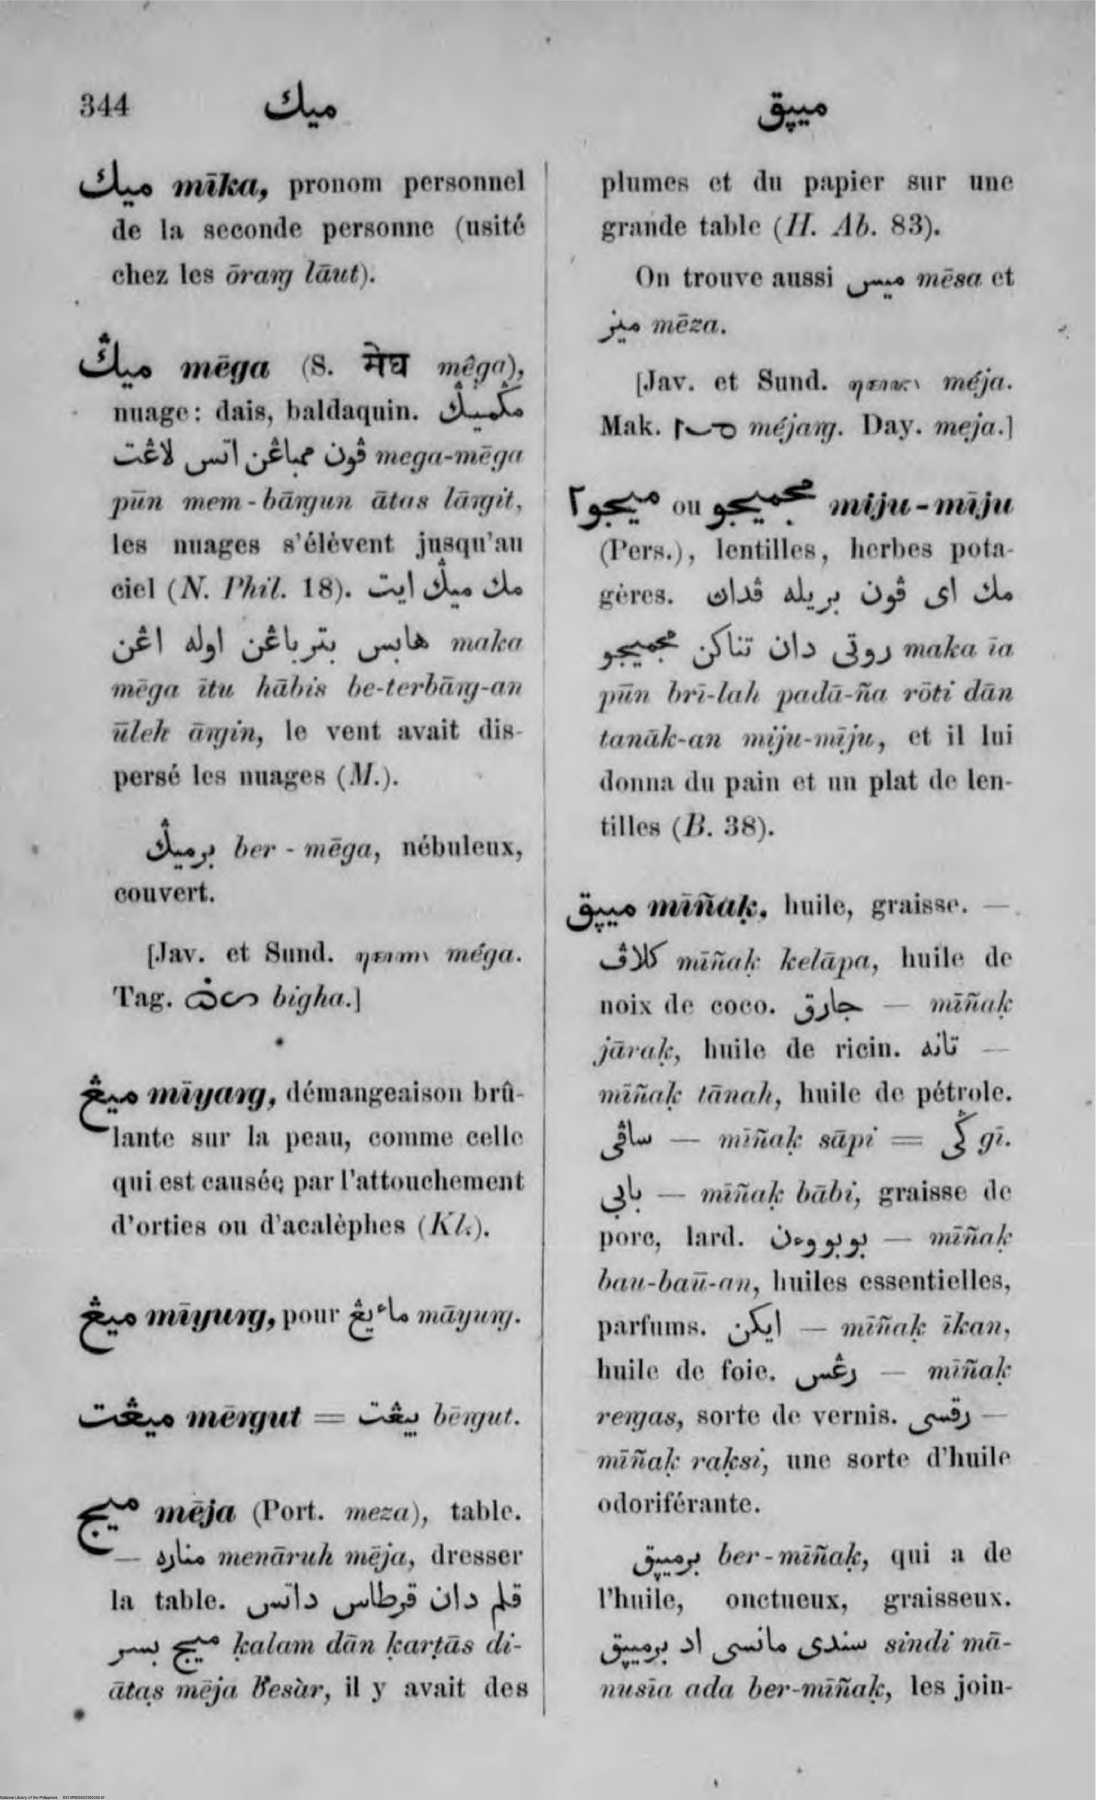 344 ميك ميڽق
ميك mīka, pronom personnel
de la seconde personne (usité
chez les ōraɳg lāut).
ميݢ mēga (S. मेघ mêga),
nuage: dais, baldaquin. مݢميݢ
ڤون ممباڠن اتس لاڠت mega-mēga
pūn mem-bāɳgun ātas lāɳgit,
les nuages s'élèvent jusqu'au
ciel (N. Phil. 18). مك ميݢ ايت
هابس بترباڠن اوله اڠن maka
mēga ītu hābis be-terbāɳg-an
ūleh āɳgin, le vent avait dis-
persé les nuages (M.).
برميݢ ber-mēga, nébuleux,
couvert.
[Jav. et Sund. méga.
Tag. bigha.]
ميڠ mīyaɳg, démangeaison brû-
lante sur la peau, comme celle
qui est causée par l'attouchement
d'orties ou d'acalèphes (Kl.).
ميڠ mīyuɳg, pour ماءيڠ māyuɳg.
ميڠت mēɳgut = بيڠت bēɳgut.
ميج mēja (Port. meza), table.
— مناره menāruh mēja, dresser
la table. قلم دان قرطاس داتس
ميج بسر ḳalam dān ḳarṭās di-
ātas mēja besàr, il y avait des
plumes et du papier sur une
grande table (H. Ab. 83).
On trouve aussi ميس mēsa et
ميز mēza.
[Jav. et Sund. méja.
Mak. méjaɳg. Day. meja.]
ميجو٢ ou مجميجو miju-mīju
(Pers.), lentilles, herbes pota-
gères. مك اى ڤون بريله ڤداڽ
روتى دان تناكن مجميجو maka īa
pūn brī-lah padā-ña rōti dān
tanāk-an miju-mīju, et il lui
donna du pain et un plat de len-
tilles (B. 38).
ميڽق mīñaḳ, huile, graisse. —
كلاڤ mīñaḳ kelāpa, huile de
noix de coco. جارق — mīñaḳ
jāraḳ, huile de ricin. تانه —
mīñaḳ tānah, huile de pétrole.
ساڤى — mīñaḳ sāpi = ݢى gī.
بابى — mīñaḳ bābi, graisse de
porc, lard. بوبووءن — mīñaḳ
bau-baū-an, huiles essentielles,
parfums. ايكن — mīñaḳ īkan,
huile de foie. رڠس — mīñaḳ
reɳgas, sorte de vernis. رقسى —
mīñaḳ raḳsi, une sorte d'huile
odoriférante.
برميڽق ber-mīñaḳ, qui a de
l'huile, onctueux, graisseux.
سندى مانسى اد برميڽق sindi mā-
nusīa ada ber-mīñaḳ, les join-